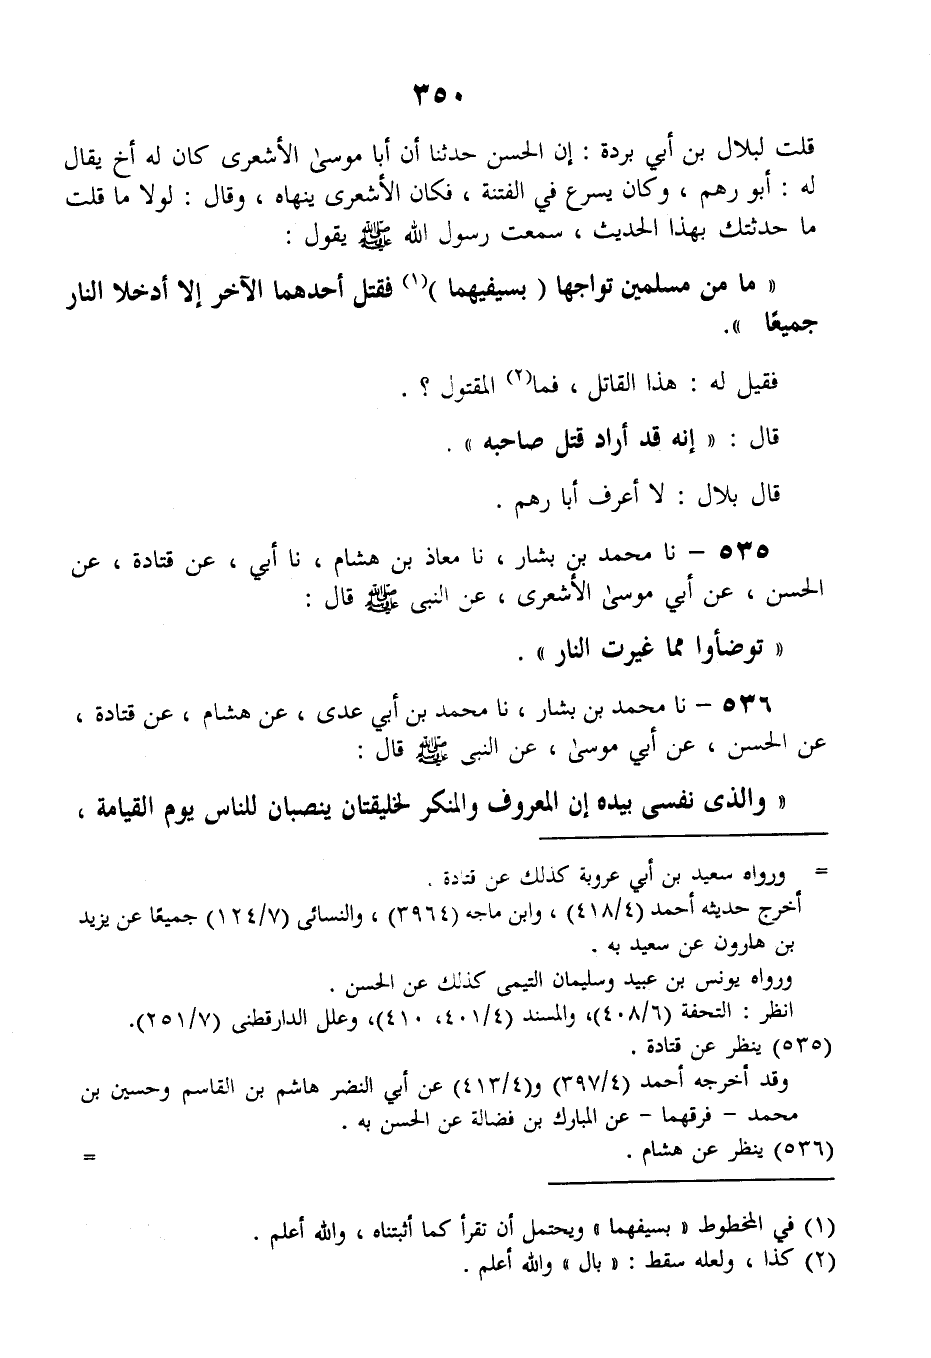 ٣٥٠
قلت لبلال بن أبي بردة : إن الحسن حدثنا أن أبا موسىٰ الأشعرى كان له أخ يقال
له : أبو رهم ، وكان يسرع في الفتنة ، فكان الأشعرى ينهاه ، وقال : لولا ما قلت
ما حدثتك بهذا الحديث ، سمعت رسول الله ﷺ يقول :
« ما من مسلمين تواجها ( بسيفيهما )(١) فقتل أحدهما الآخر إلا أدخلا النار
جميعًا ».
فقيل له : هذا القاتل ، فما(٢) المقتول ؟ .
قال : « إنه قد أراد قتل صاحبه » .
قال بلال : لا أعرف أبا رهم .
٥٣٥ – نا محمد بن بشار ، نا معاذ بن هشام ، نا أبي ، عن قتادة ، عن
الحسن ، عن أبي موسىٰ الأشعرى ، عن النبى ﷺ قال :
« توضأوا مما غيرت النار » .
٥٣٦ – نا محمد بن بشار ، نا محمد بن أبي عدى ، عن هشام ، عن قتادة ،
عن الحسن ، عن أبي موسىٰ ، عن النبى ﷺ قال :
« والذى نفسى بيده إن المعروف والمنكر لخليقتان ينصبان للناس يوم القيامة ،
= ورواه سعيد بن أبي عروبة كذلك عن قتادة .
أخرج حديثه أحمد (٤١٨/٤) ، وابن ماجه (٣٩٦٤) ، والنسائى (١٢٤/٧) جميعًا عن يزيد
بن هارون عن سعيد به .
ورواه يونس بن عبيد وسليمان التيمى كذلك عن الحسن .
انظر : التحفة (٤٠٨/٦)، والمسند (٤٠١/٤، ٤١٠)، وعلل الدارقطنى (٢٥١/٧).
(٥٣٥) ينظر عن قتادة .
وقد أخرجه أحمد (٣٩٧/٤) و(٤١٣/٤) عن أبي النضر هاشم بن القاسم وحسين بن
محمد – فرقهما – عن المبارك بن فضالة عن الحسن به .
(٥٣٦) ينظر عن هشام . =
(١) في المخطوط « بسيفهما » ويحتمل أن تقرأ كما أثبتناه ، والله أعلم .
(٢) كذا ، ولعله سقط : « بال » والله أعلم .